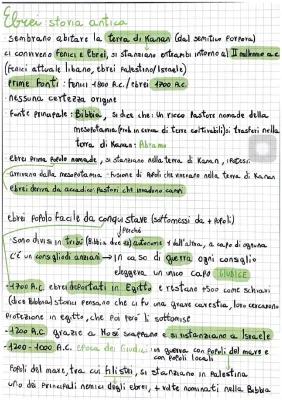 Ebrei: storia antica
- sembrano abitare la terra di Kanan (dal semitico porpora)
ci convivono Fenici e Ebrei, si stanziano entrambi intorno al II millennio a.C
(Fenici attuale libano, ebrei Palestina/Israele)
prime fonti: fenici 1800 A.C./ebrei 1700 A.C.
- nessuna certezza origine
Fonte principale: Bibbia, si dice che: un ricco Pastore nomade della
mesopotamia (prob in cerca di terre coltivabili) si trasferì nella
terra di Kanan: Abramo
ebrei prima popolo nomade, si stanziano nella terra di Kanan, ipotesi:
arrivano dalla mesopotamia - Fusione di popoli che vivevano nella terra di Kanan
ebrei deriva da accadico: Pastori che invadono campi
ebrei popolo facile da conquistare (sottomessi da + popoli)
Perché
- Sono divisi in tribù (Bibbia dice 12) autonome l'dall'altra, a capo di ognuna
c'è un consiglio di anziani → in caso di guerra ogni consiglio
eleggeva un unico capo GIUDICE
- 1700 A.C. ebrei deportati in Egitto e restano +500 come schiavi
(dice Bibbia) storici pensano che ci fu una grave carestia, loro cercarono
Protezione in egitto, che poi però li sottomise
- 1200 A.C. grazie a Mosè scappano e si ristanziano a Israele
- 1200 - 1000 A.C. epoca dei Giudici: in guerra con popoli del mare e
con popoli locali
Popoli del mare, tra cui filistei, si stanziano in Palestina
uno dei principali nemici degli ebrei, + volte nominati nella Bibbia